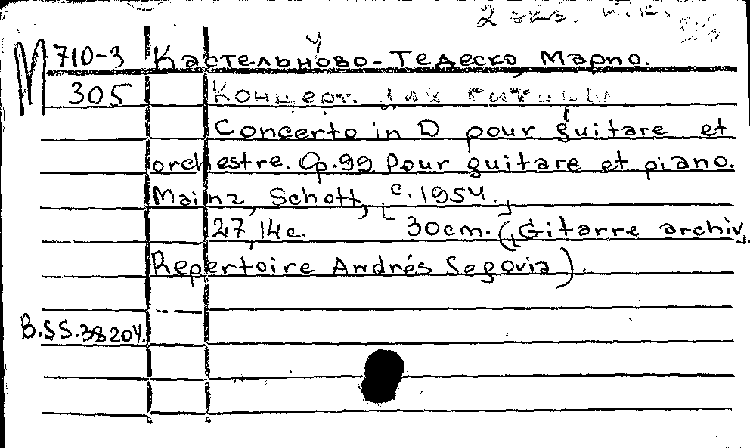 2 экз. н.к.
М 710-3 Кастельново-Тедеско, Марио.
305 Концерт. для гитары
Concerto in D pour guitare et
orchestre. Op.99 Pour guitare et piano.
Mainz, Schott, [c.1954.]
27,14c. 30cm. (Gitarre archiv,
Repertoire Andrés Segovia).
B.SS.38204.